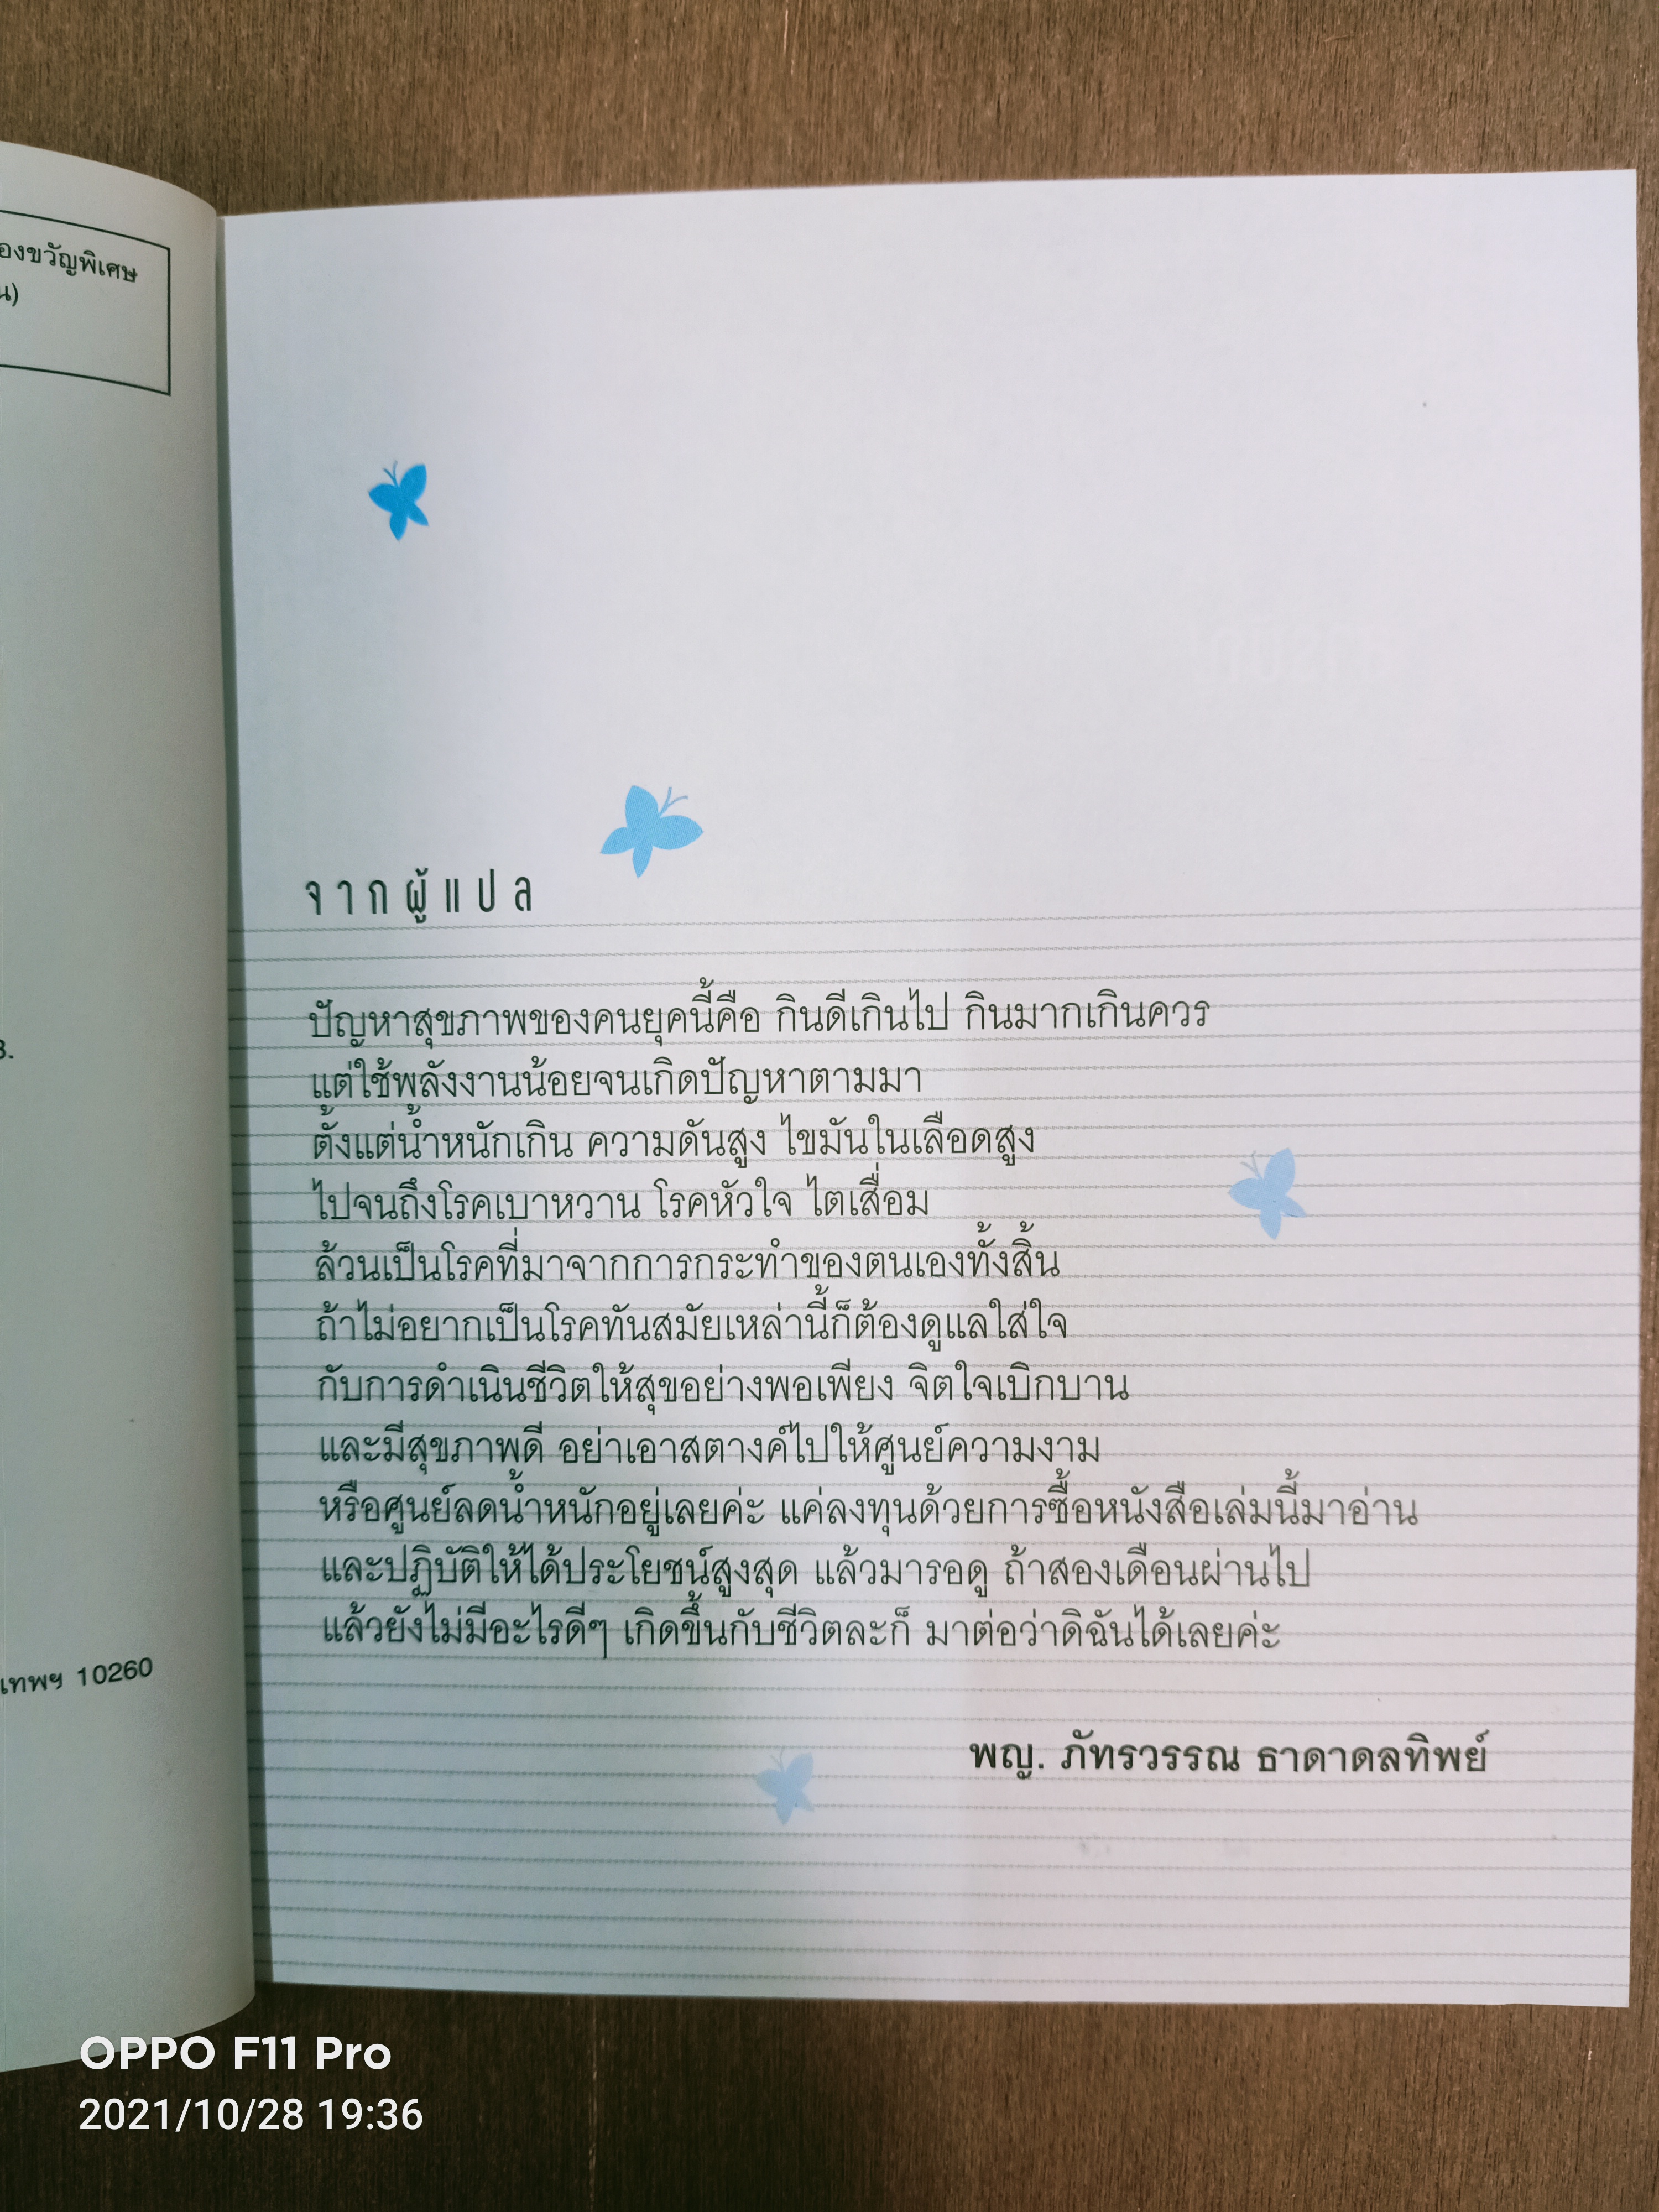 องขวัญพิเศษ
น)
3.
เทพฯ 10260
จากผู้แปล
ปัญหาสุขภาพของคนยุคนี้คือ กินดีเกินไป กินมากเกินควร
แต่ใช้พลังงานน้อยจนเกิดปัญหาตามมา
ตั้งแต่น้ำหนักเกิน ความดันสูง ไขมันในเลือดสูง
ไปจนถึงโรคเบาหวาน โรคหัวใจ ไตเสื่อม
ล้วนเป็นโรคที่มาจากการกระทำของตนเองทั้งสิ้น
ถ้าไม่อยากเป็นโรคทันสมัยเหล่านี้ก็ต้องดูแลใส่ใจ
กับการดำเนินชีวิตให้สุขอย่างพอเพียง จิตใจเบิกบาน
และมีสุขภาพดี อย่าเอาสตางค์ไปให้ศูนย์ความงาม
หรือศูนย์ลดน้ำหนักอยู่เลยค่ะ แค่ลงทุนด้วยการซื้อหนังสือเล่มนี้มาอ่าน
และปฏิบัติให้ได้ประโยชน์สูงสุด แล้วมารอดู ถ้าสองเดือนผ่านไป
แล้วยังไม่มีอะไรดีๆ เกิดขึ้นกับชีวิตละก็ มาต่อว่าดิฉันได้เลยค่ะ
พญ. ภัทรวรรณ ธาดาดลทิพย์
OPPO F11 Pro
2021/10/28 19:36